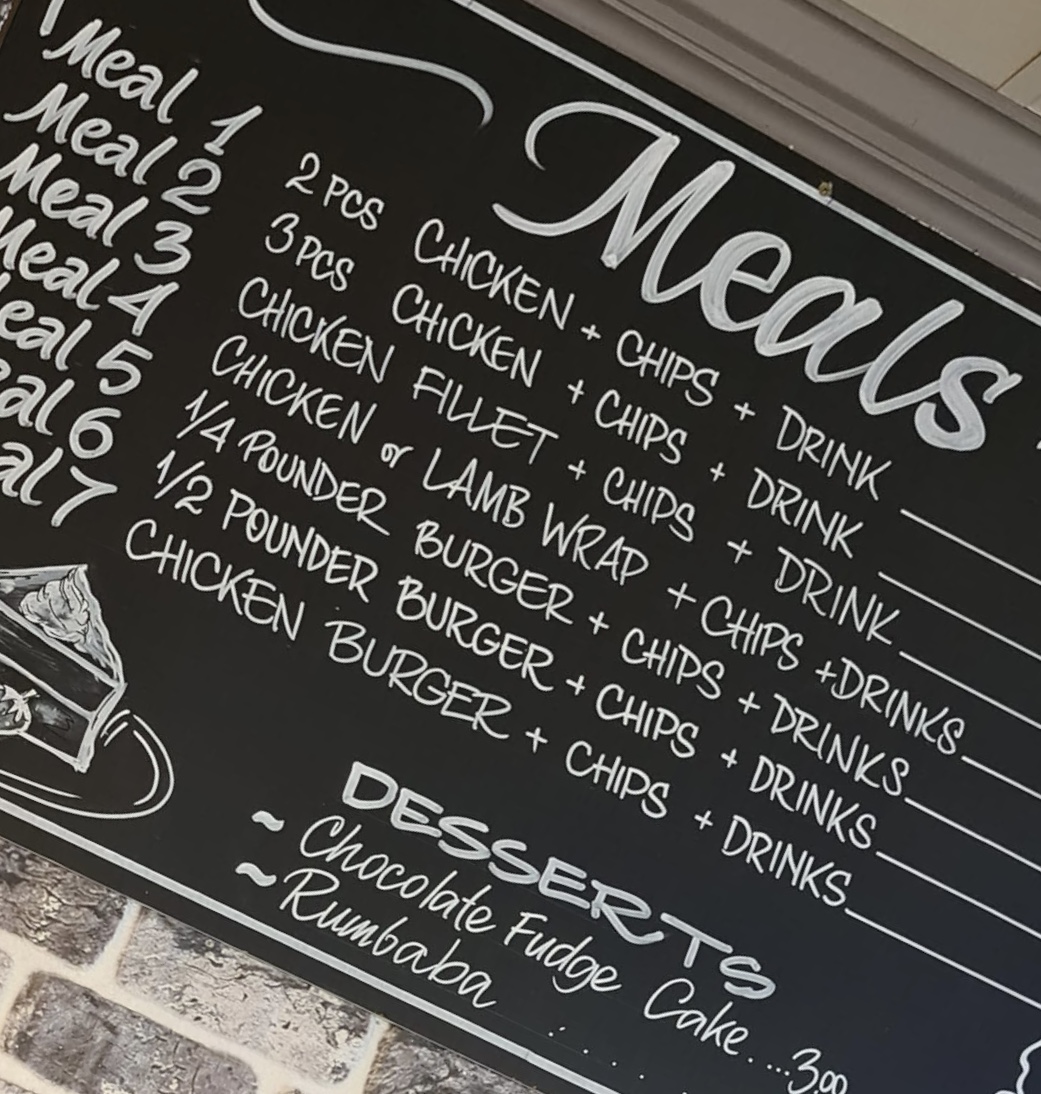 Meals
Meal 1 2 PCS CHICKEN + CHIPS + DRINK
Meal 2 3 PCS CHICKEN + CHIPS + DRINK
Meal 3 CHICKEN FILLET + CHIPS + DRINK
Meal 4 CHICKEN or LAMB WRAP + CHIPS + DRINKS
eal 5 1/4 POUNDER BURGER + CHIPS + DRINKS
al 6 1/2 POUNDER BURGER + CHIPS + DRINKS
al 7 CHICKEN BURGER + CHIPS + DRINKS
DESSERTS
~ Chocolate Fudge Cake...3.00
~ Rumbaba